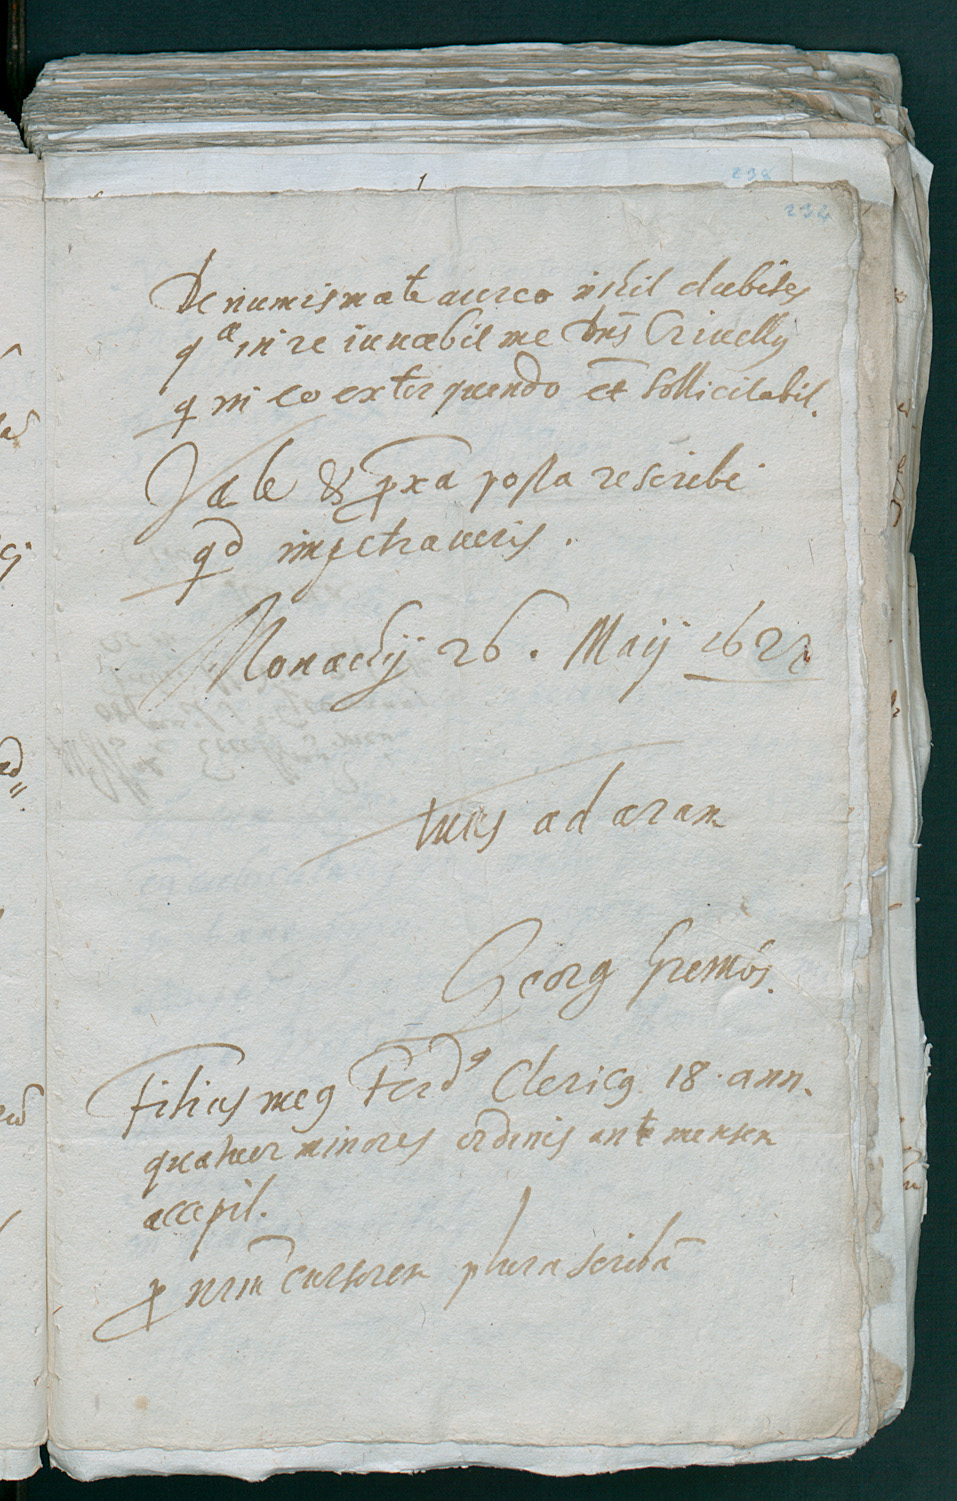 238
234
De numismate aureo nihil dubites
qa in re iuvabit me Dns Crivellg
q in eo extorquendo et sollicitabit.
Vale & pxa posta rescribe
qd impetraveris.
Monachij 26. Maij 162
tuus ad aram
Georg
Filius meg Ferdg Clericg 18. ann.
quatuor minores ordinis ante mensem
accepit.
p nrm cursorem plura scribā